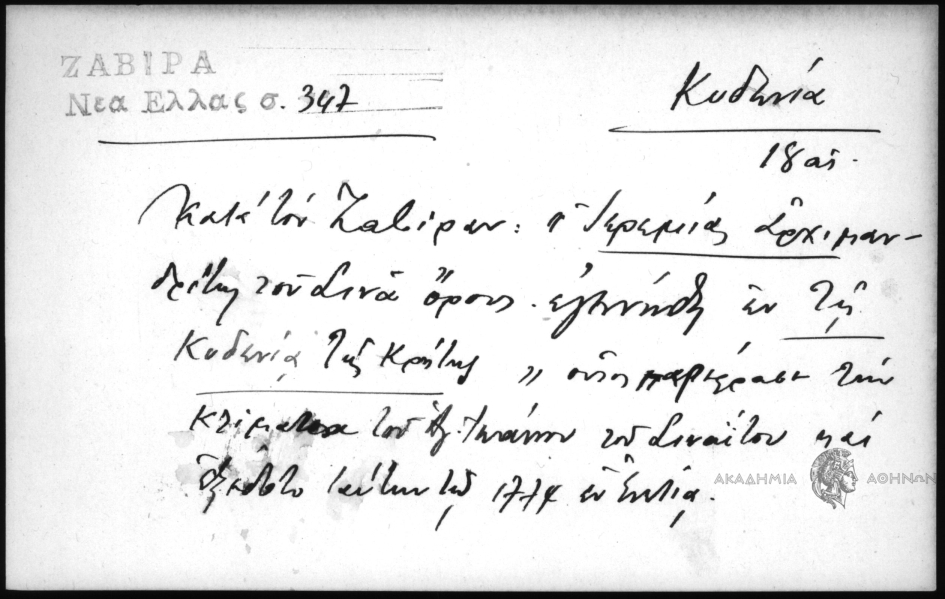 ΖΑΒΙΡΑ
Νεα Ελλας σ. 347
Κυδωνία
18 αἰ.
Κατὰ τὸν Ζαβίραν: ὁ Ἱερεμίας ἀρχιμαν-
δρίτης τοῦ Σινᾶ ὄρους. ἐγεννήθη ἐν τῇ
Κυδωνίᾳ τῆς Κρήτης " οὗτος παρέφρασε τὴν
Κλίμακα τοῦ Ἁγ. Ἰωάννου τοῦ Σιναΐτου καὶ
ἐξέδοτο ταύτην τῷ 1774 ἐν Ἐνετίᾳ.
ΑΚΑΔΗΜΙΑ ΑΘΗΝΩΝ